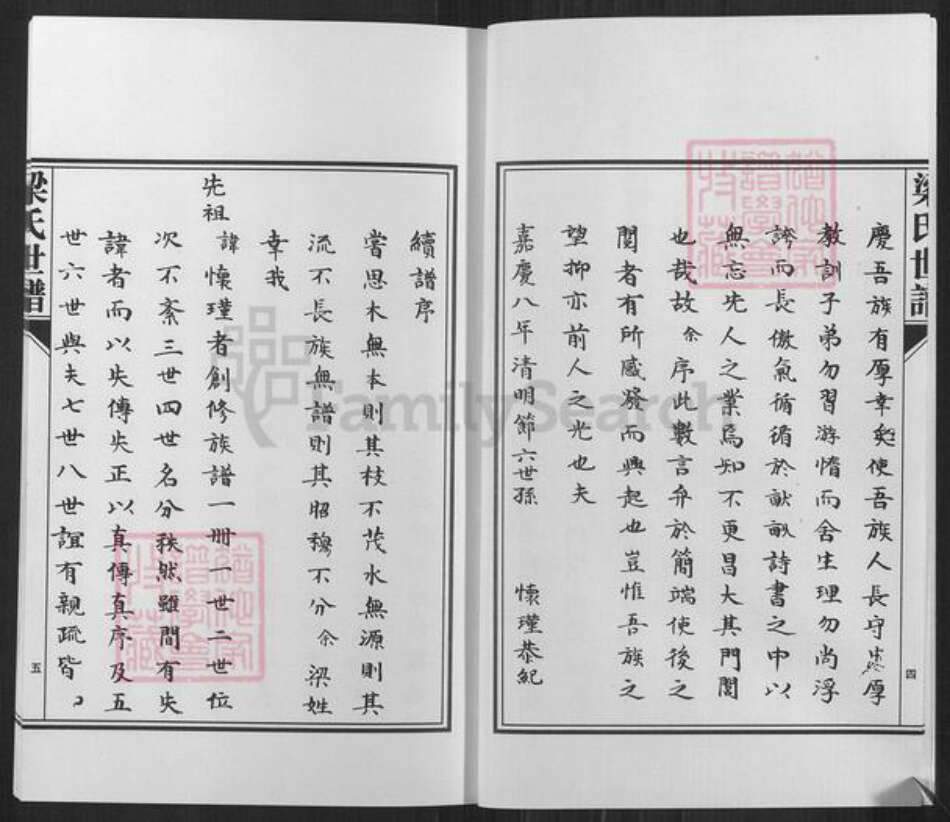 梁氏世譜
慶吾族有厚幸矣使吾族人長守忠厚
教訓子弟勿習游惰而舍生理勿尚浮
誇而長傲氣循循於畎畝詩書之中以
無忘先人之業焉知不更昌大其門閭
也哉故余序此數言弁於簡端使後之
閱者有所感發而興起也豈惟吾族之
望抑亦前人之光也夫
嘉慶八年清明節六世孫 懷瑾恭紀
四
續譜序
嘗思木無本則其枝不茂水無源則其
流不長族無譜則其昭穆不分余梁姓
幸我
先祖
諱懷瑾者創修族譜一冊一世二世位
次不紊三世四世名分秩然雖間有失
諱者而以失傳失正以真傳真序及五
世六世與夫七世八世誼有親疏皆
梁氏世譜
五
FamilySearch